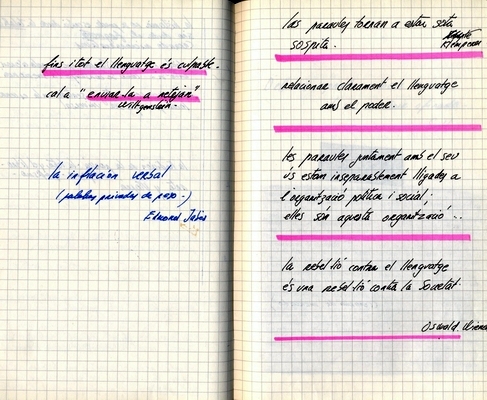 fins i tot el llenguatge és culpable.
cal a "enviar-la a netejar"
Wittgenstein.
la inflación verbal
(palabras privadas de peso.)
Edmond Jabès
las paraules tornan a estar sota
sospita.
Klemperer
relacionar clarament el llenguatge
amb el poder.
les paraules juntament amb el seu
ús estan inseparablement lligades a
l'organització política i social;
elles són aquesta organització...
la rebelió contra el llenguatge
és una rebelió contra la Societat.
Oswald Wiener